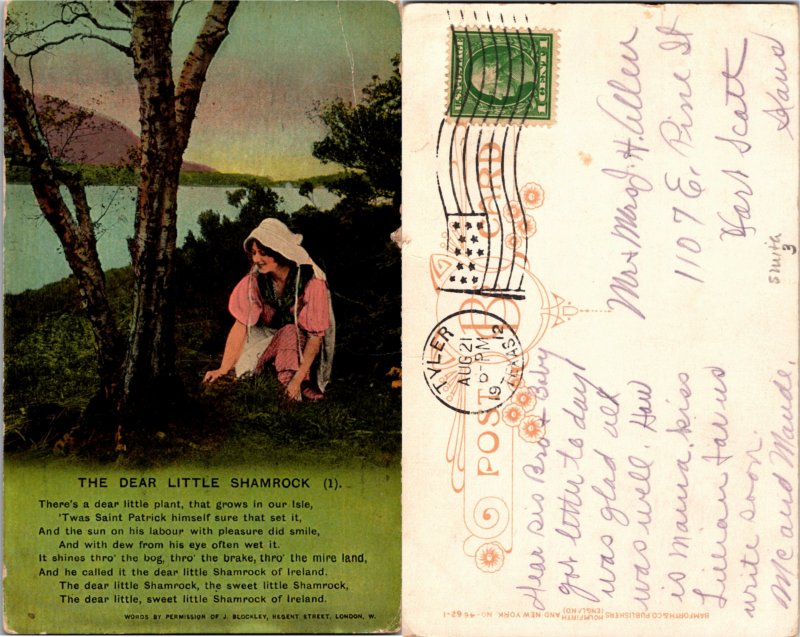 THE DEAR LITTLE SHAMROCK (1).
There's a dear little plant, that grows in our Isle,
'Twas Saint Patrick himself sure that set it,
And the sun on his labour with pleasure did smile,
And with dew from his eye often wet it.
It shines thro' the bog, thro' the brake, thro' the mire land,
And he called it the dear little Shamrock of Ireland.
The dear little Shamrock, the sweet little Shamrock,
The dear little, sweet little Shamrock of Ireland.
WORDS BY PERMISSION OF J. BLOCKLEY, REGENT STREET, LONDON, W.
POST CARD
1 CENT 1
TYLER
AUG 21
6-PM
1912
TEXAS
Mr & Mrs J. H. Allen
1107 E. Pine St
Fort Scott
Kans
Smith
3
Dear Sis Bro & Baby
got letter to day
was glad all
was well. How
is Mama. kiss
Lillian for us
write soon.
Mc and Maude.
BAMFORTH & CO PUBLISHERS HOLMFIRTH (ENGLAND) AND NEW YORK NO 4662-1